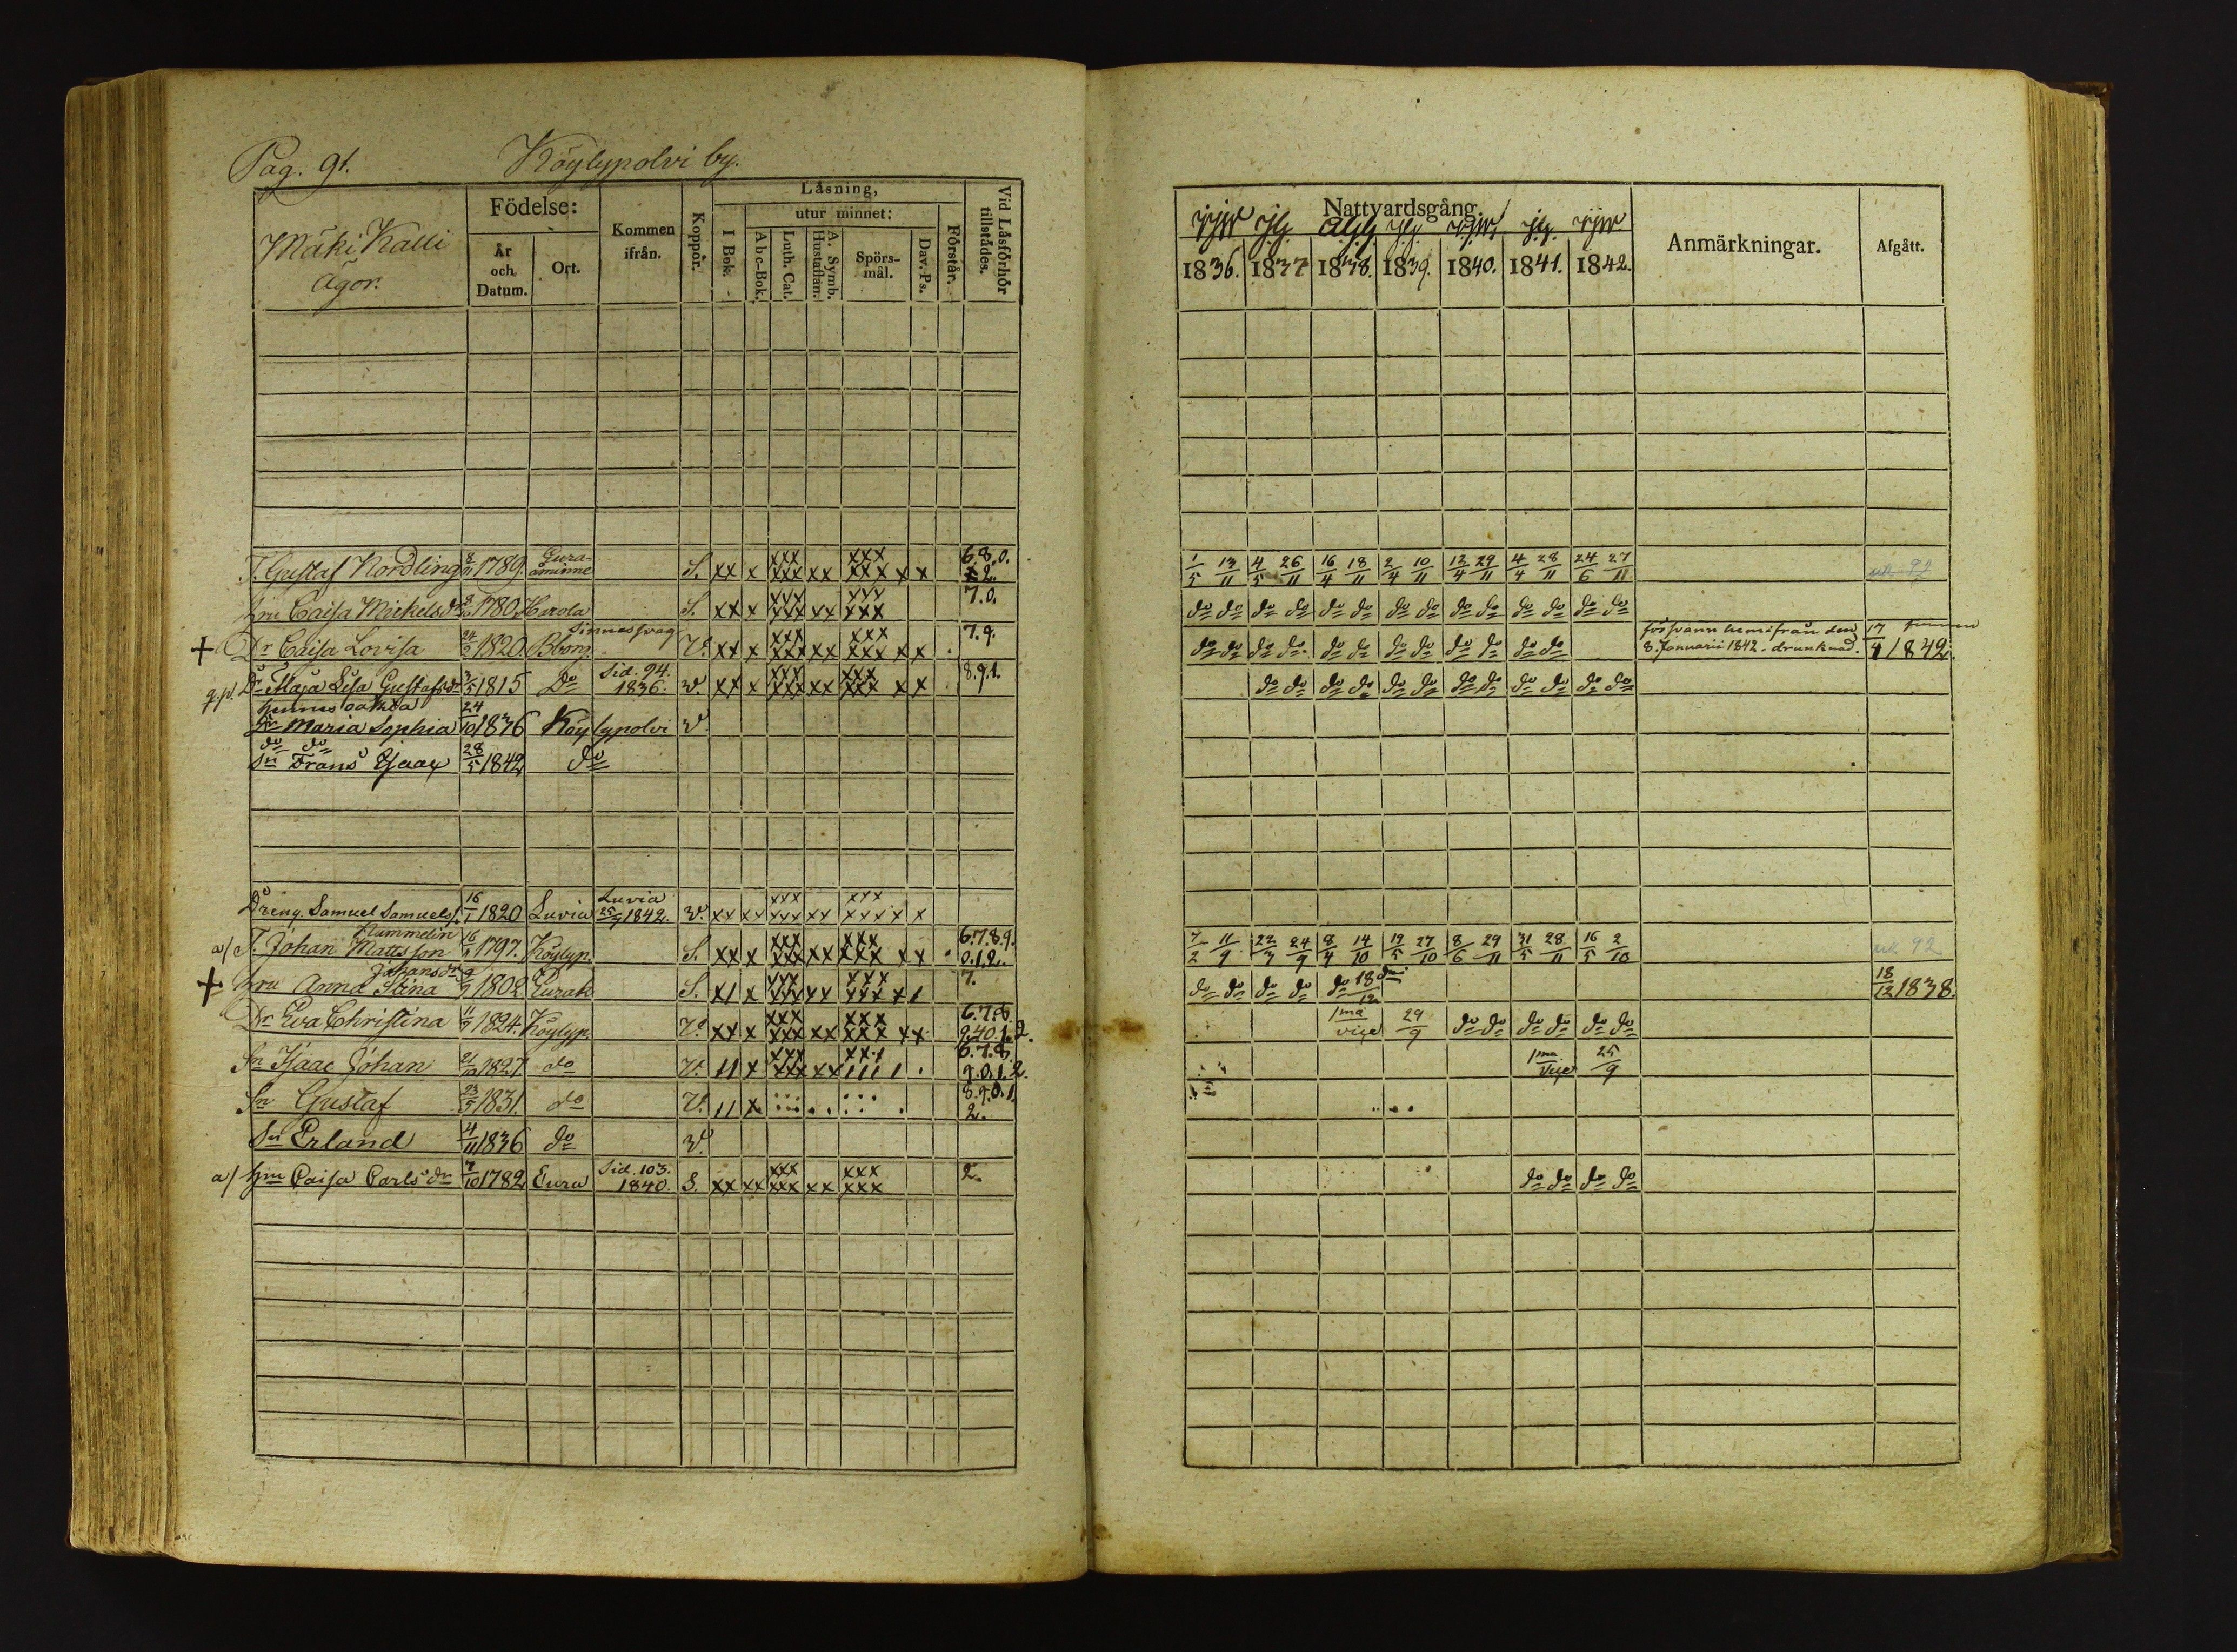 Pag. 91. Köylypolvi by.
Mäki Kalli
Ägor.
Födelse:
År och Datum.
Ort.
Kommen ifrån.
Koppor.
Läsning,
utur minnet:
I Bok.
Abc-Bok.
Luth. Cat.
A. Symb. Hustaflan.
Spörs-mål.
Dav. Ps.
Förstår.
Vid Läsförhör tillstädes.
T. Gustaf Nordling 8/11 1789. Eura-åminne S. xx x xxx xxx xx xxx xxx x x 6.8.0. 2.
hru Caisa Mickelsdr 1780. Hirola S. xx x xxx xxx xx xxx xxx 7.0.
+ Dr Caisa Lovisa 24/2 1820 Bborg Sinnessvag V. xx x xxx xxx xx xxx xxx x x . 7.9.
q.pl. Dr Maja Lisa Gustafsdr 3/5 1815 Do Sid. 94. 1836. v. xx x xxx xxx xx xxx xxx x x 8.9.1.
hennes oäkta
Dr Maria Sophia 24/10 1836 Köylypolvi v.
do do
Sn Frans Isaac 28/5 1842 do
Dreng. Samuel Samuelss. 16/1 1820 Luvia Luvia 25/9 1842. v. xx xx xxx xxx xx xxx xxx x x
Nummelin
a/ T. Johan Mattsson 1797. Köylyp. S. xx x xxx xxx xx xxx xxx x x . 6.7.8.9. 0.1.2.
Johansdr
+ hru Anna Stina 1802 Eurak S. x/ x xxx xxx xx xxx xxx x / 7.
Dr Eva Christina 11/7 1824. Köylyp. V. xx x xxx xxx xx xxx xxx x x 6.7.8. 9.40.1.2.
Sn Isaac Johan 21/10 1827 do V. // x xxx xxx xx 6.7.8. 9.0.1.2.
Sn Gustaf 23/5 1831. do V. // x 8.9.0.1. 2.
Sn Erland 4/11 1836 do v.
a/ hru Caisa Carlsdr 7/10 1782 Eura Sid. 103. 1840. S. xx xx xxx xxx xx xxx xxx 2.
Nattvardsgång.
1836. 1837 1838. 1839. 1840. 1841. 1842.
Anmärkningar.
Afgått.
1/5 13/11 4/5 26/11 16/4 18/11 2/4 10/11 12/4 29/11 4/4 28/11 24/6 27/11
do do do do do do do do do do do do do do
do do do do do do do do do do do do försvann hemifrån den 8. Januarii 1842 - drunknad. 17/4 1842.
do do do do do do do do do do do do
7/2 11/9 22/3 24/9 8/4 14/10 19/5 27/10 8/6 29/11 31/5 28/11 16/5 2/10 92
do do do do do 18/12 18/12 1838.
1ma vice 29/9 do do do do do do
1ma vice 25/9
do do do do